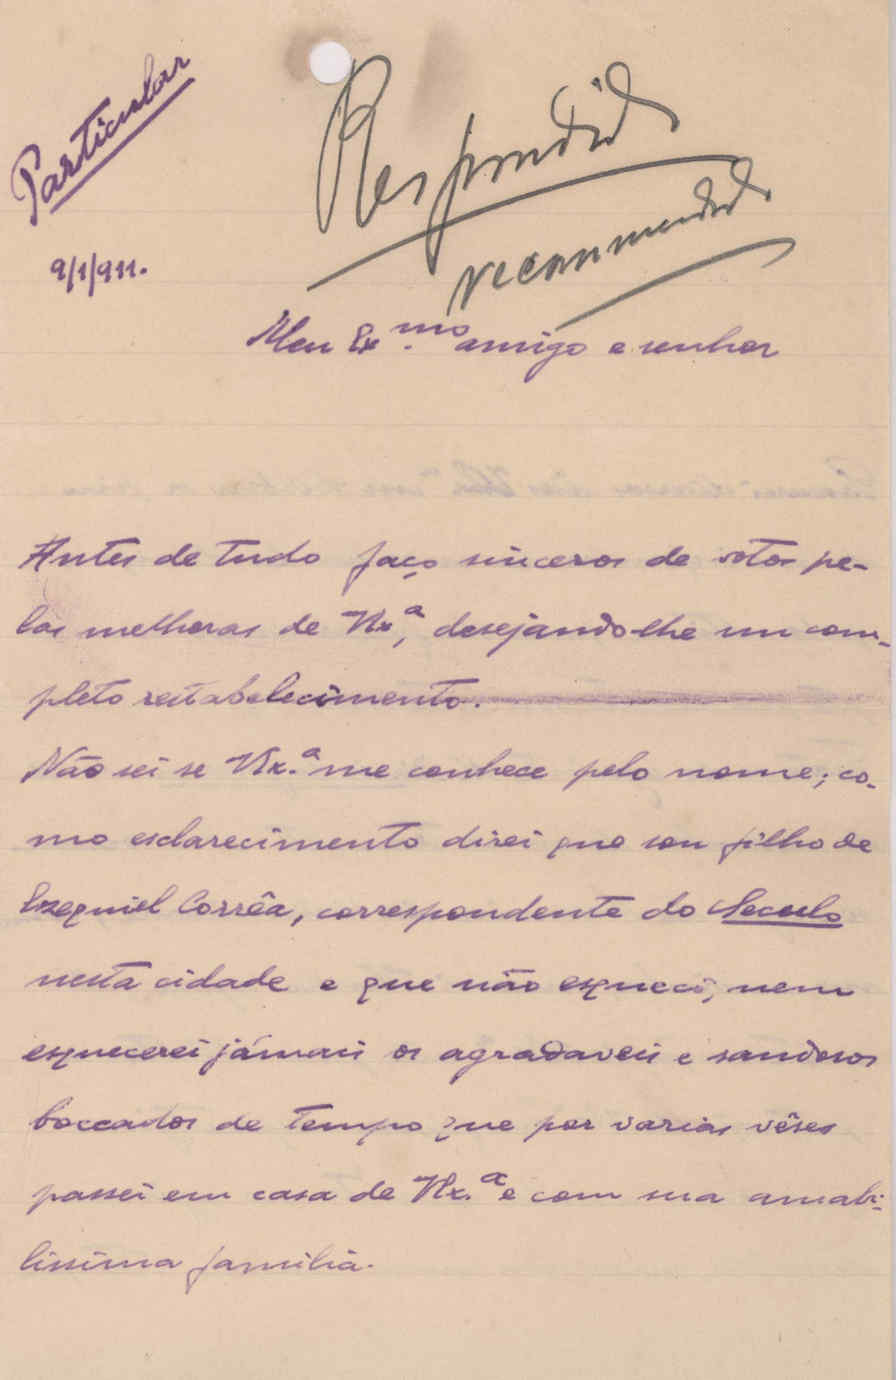 Particular
9/1/911.
Respondido
recommendado
Meu Ex.mo amigo e senhor
Antes de tudo faço sinceros de votos pe-
las melhoras de V.Ex.ª, desejando-lhe um com-
pleto restabelecimento.
Não sei se V.Ex.ª me conhece pelo nome; co-
mo esclarecimento direi que sou filho de
Ezequiel Corrêa, correspondente do Seculo
nesta cidade e que não esqueci, nem
esquecerei jámais os agradaveis e saudosos
boccados de tempo que por varias vêses
passei em casa de V.Ex.ª e com sua amabi-
lissima familia.